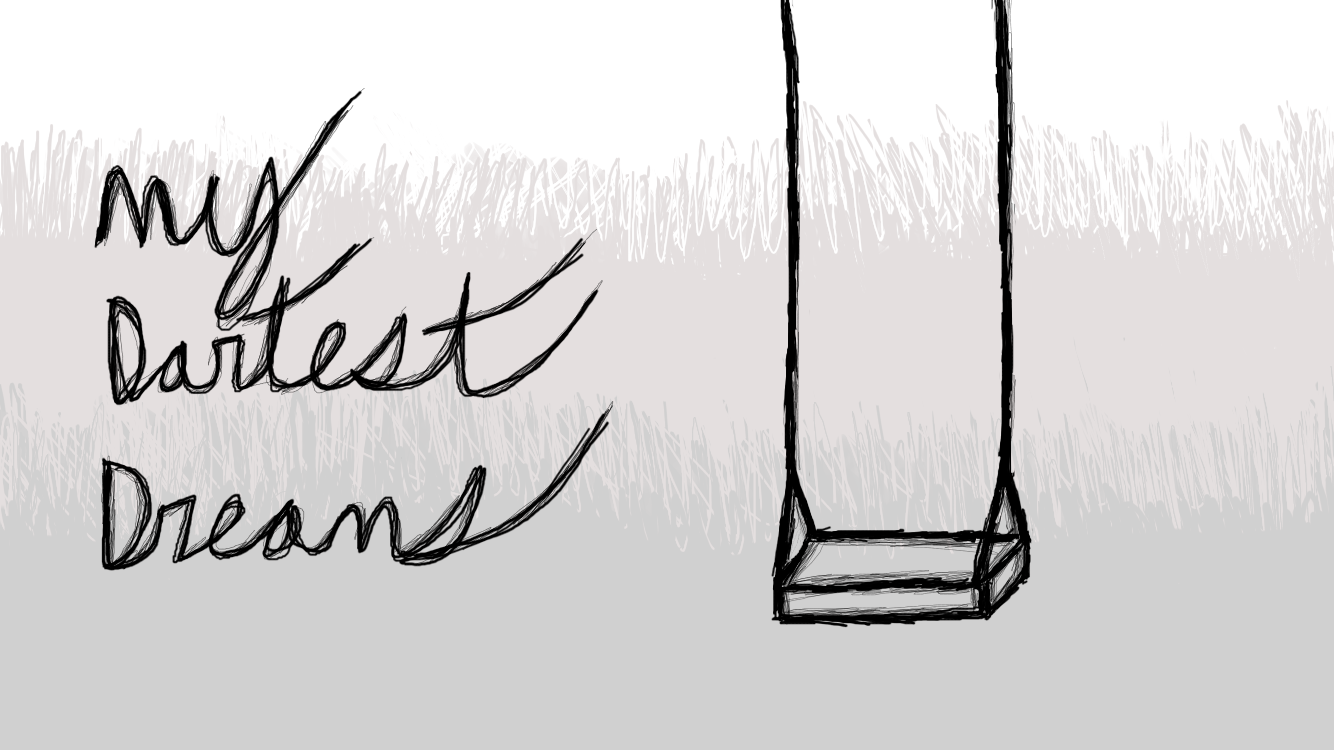 My
Dartest
Dreams